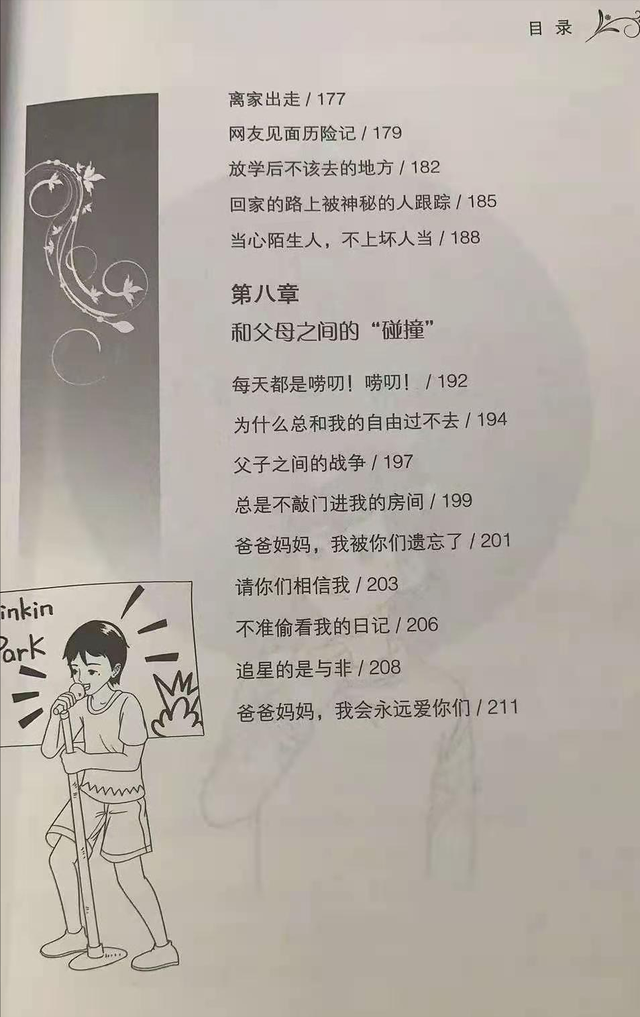 目 录
离家出走 / 177
网友见面历险记 / 179
放学后不该去的地方 / 182
回家的路上被神秘的人跟踪 / 185
当心陌生人，不上坏人当 / 188
第八章
和父母之间的“碰撞”
每天都是唠叨！唠叨！ / 192
为什么总和我的自由过不去 / 194
父子之间的战争 / 197
总是不敲门进我的房间 / 199
爸爸妈妈，我被你们遗忘了 / 201
请你们相信我 / 203
不准偷看我的日记 / 206
追星的是与非 / 208
爸爸妈妈，我会永远爱你们 / 211
inkin
Park